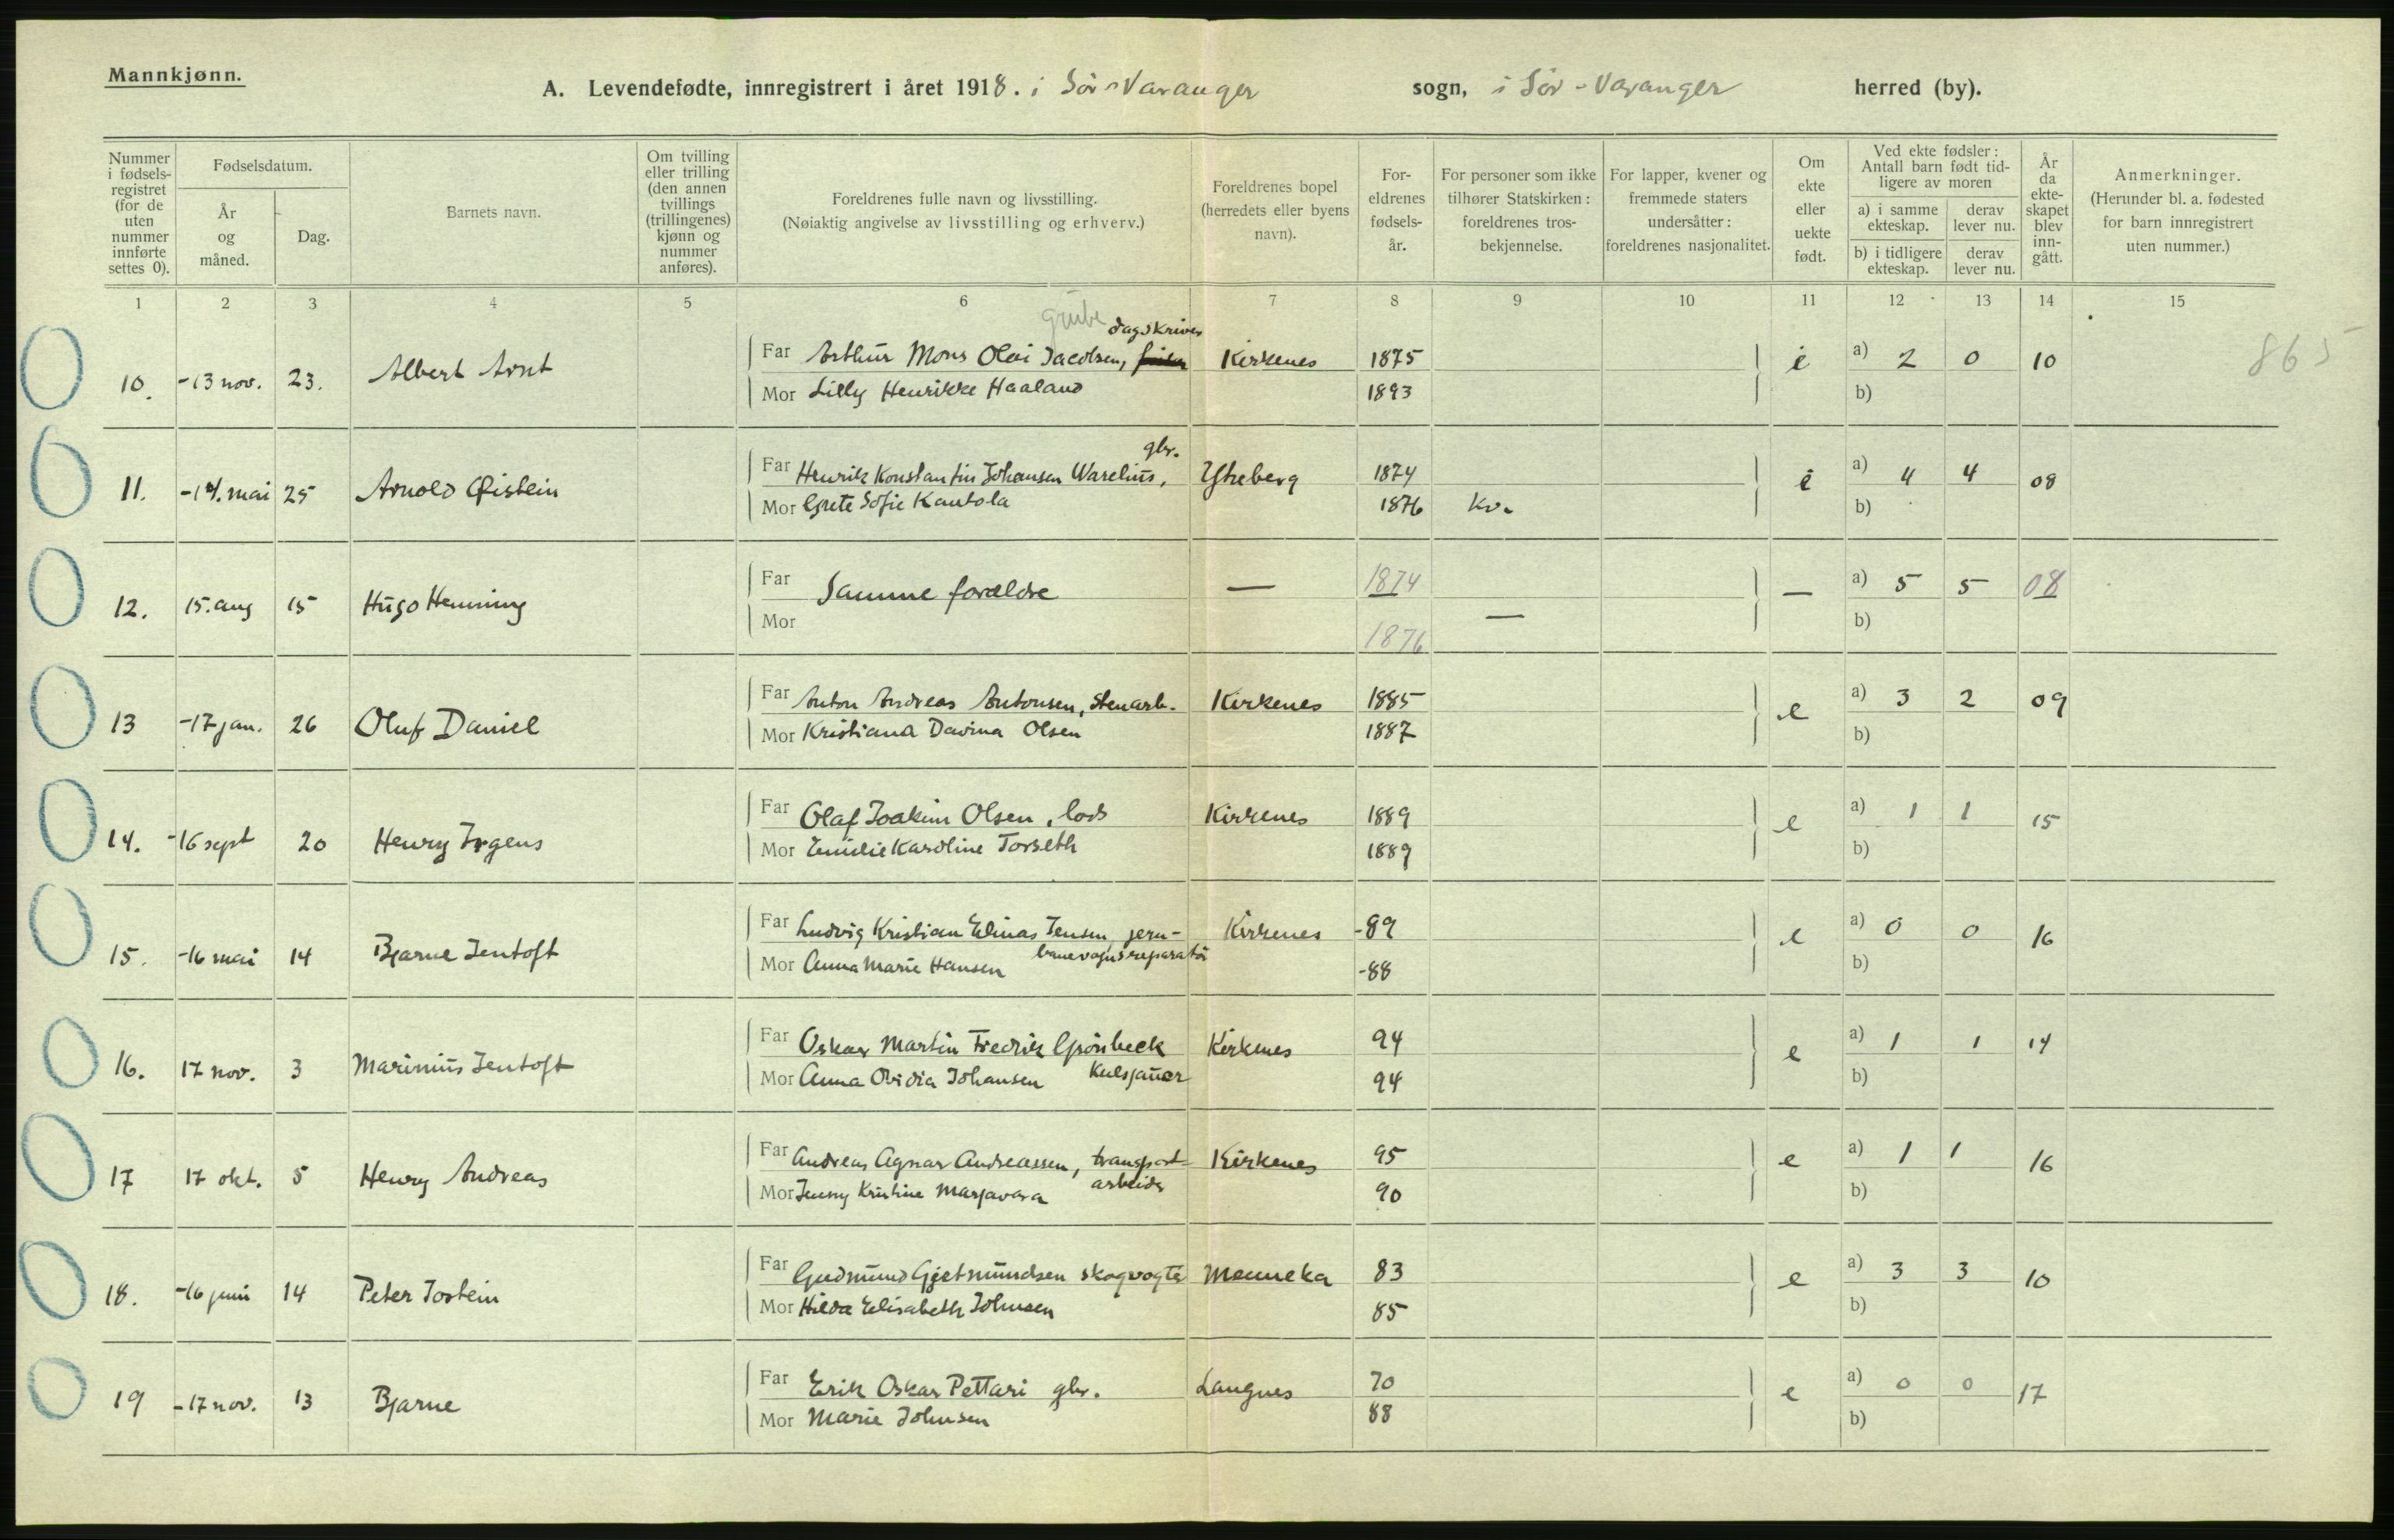 Mannkjønn.
A. Levendefødte, innregistrert i året 1918. i Sör-Varanger sogn, i Sör-Varanger herred (by).
Nummer i fødselsregistret (for de uten nummer innførte settes 0).
Fødselsdatum.
År og måned.
Dag.
Barnets navn.
Om tvilling eller trilling (den annen tvillings (trillingenes) kjønn og nummer anføres).
Foreldrenes fulle navn og livsstilling.
(Nøiaktig angivelse av livsstilling og erhverv.)
Foreldrenes bopel (herredets eller byens navn).
Foreldrenes fødselsår.
For personer som ikke tilhører Statskirken: foreldrenes trosbekjennelse.
For lapper, kvener og fremmede staters undersåtter: foreldrenes nasjonalitet.
Om ekte eller uekte født.
Ved ekte fødsler: Antall barn født tidligere av moren
a) i samme ekteskap.
derav lever nu.
b) i tidligere ekteskap.
derav lever nu.
År da ekteskapet blev inngått.
Anmerkninger.
(Herunder bl. a. fødested for barn innregistrert uten nummer.)
1 2 3 4 5 6 7 8 9 10 11 12 13 14 15
grube dagskriver
10. -13 nov. 23. Albert Arnt Far Arthur Mons Olai Jacobsen, Kirkenes 1875 e a) 2 0 10 865
Mor Lilly Henrikke Haaland 1893 b)
gbr.
11. -14. mai 25 Arnold Øistein Far Henrik Konstantin Johansen Warelius, Ytreberg 1874 e a) 4 4 08
Mor Grete Sofie Kantola 1876 kv. b)
12. 15. aug 15 Hugo Henning Far Samme forældre — 1874 — a) 5 5 08
Mor 1876 — b)
13 -17 jan. 26 Oluf Daniel Far Anton Andreas Antonsen, stenarb. Kirkenes 1885 e a) 3 2 09
Mor Kristiana Davina Olsen 1887 b)
14. -16 sept 20 Henry Irgens Far Olaf Joakim Olsen, lods Kirkenes 1889 e a) 1 1 15
Mor Emilie Karoline Torseth 1889 b)
15. -16 mai 14 Bjarne Jentoft Far Ludvig Kristian Elinas Jensen, jern- Kirkenes -89 e a) 0 0 16
Mor Anna Marie Hansen banevognsreparatör -88 b)
16. 17 nov. 3 Marinius Jentoft Far Oskar Martin Fredrik Grönbeck Kirkenes 94 e a) 1 1 14
Mor Anna Ovidia Johansen kulsjauer 94 b)
17 17 okt. 5 Henry Andreas Far Andreas Agnar Andreassen, transport- Kirkenes 95 e a) 1 1 16
Mor Jenny Kristine Marjavara arbeider 90 b)
18. -16 juni 14 Peter Jostein Far Gudmund Gjetmundsen skogvogter Menneka 83 e a) 3 3 10
Mor Hilda Elisabeth Johnsen 85 b)
19 -17 nov. 13 Bjarne Far Erik Oskar Pettari gbr. Langnes 70 e a) 0 0 17
Mor Marie Johnsen 88 b)